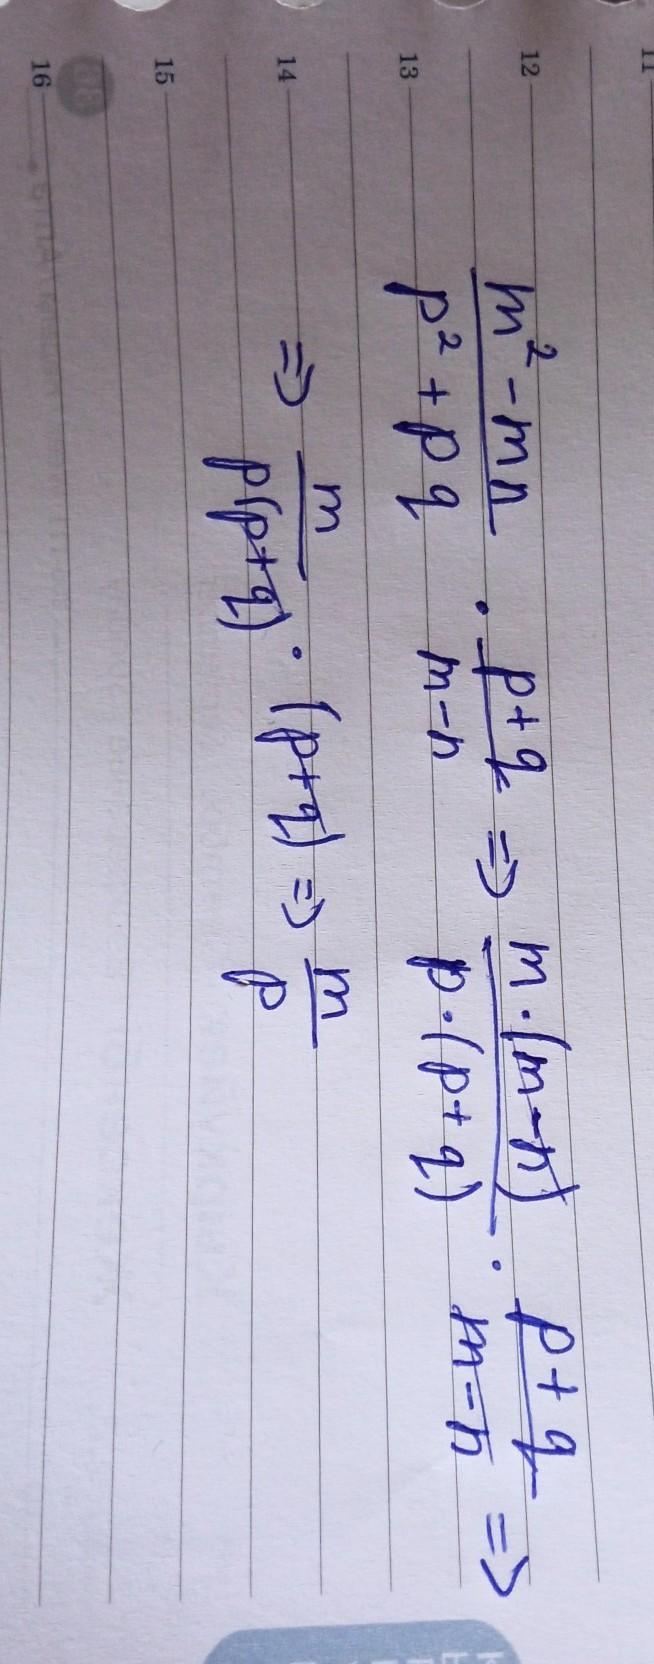 11
12
m² - mn / p² + pq · p+q / m-n => m·(m-n) / p·(p+q) · p+q / m-n =>
13
=> m / p(p+q) · (p+q) => m / p
14
15
16